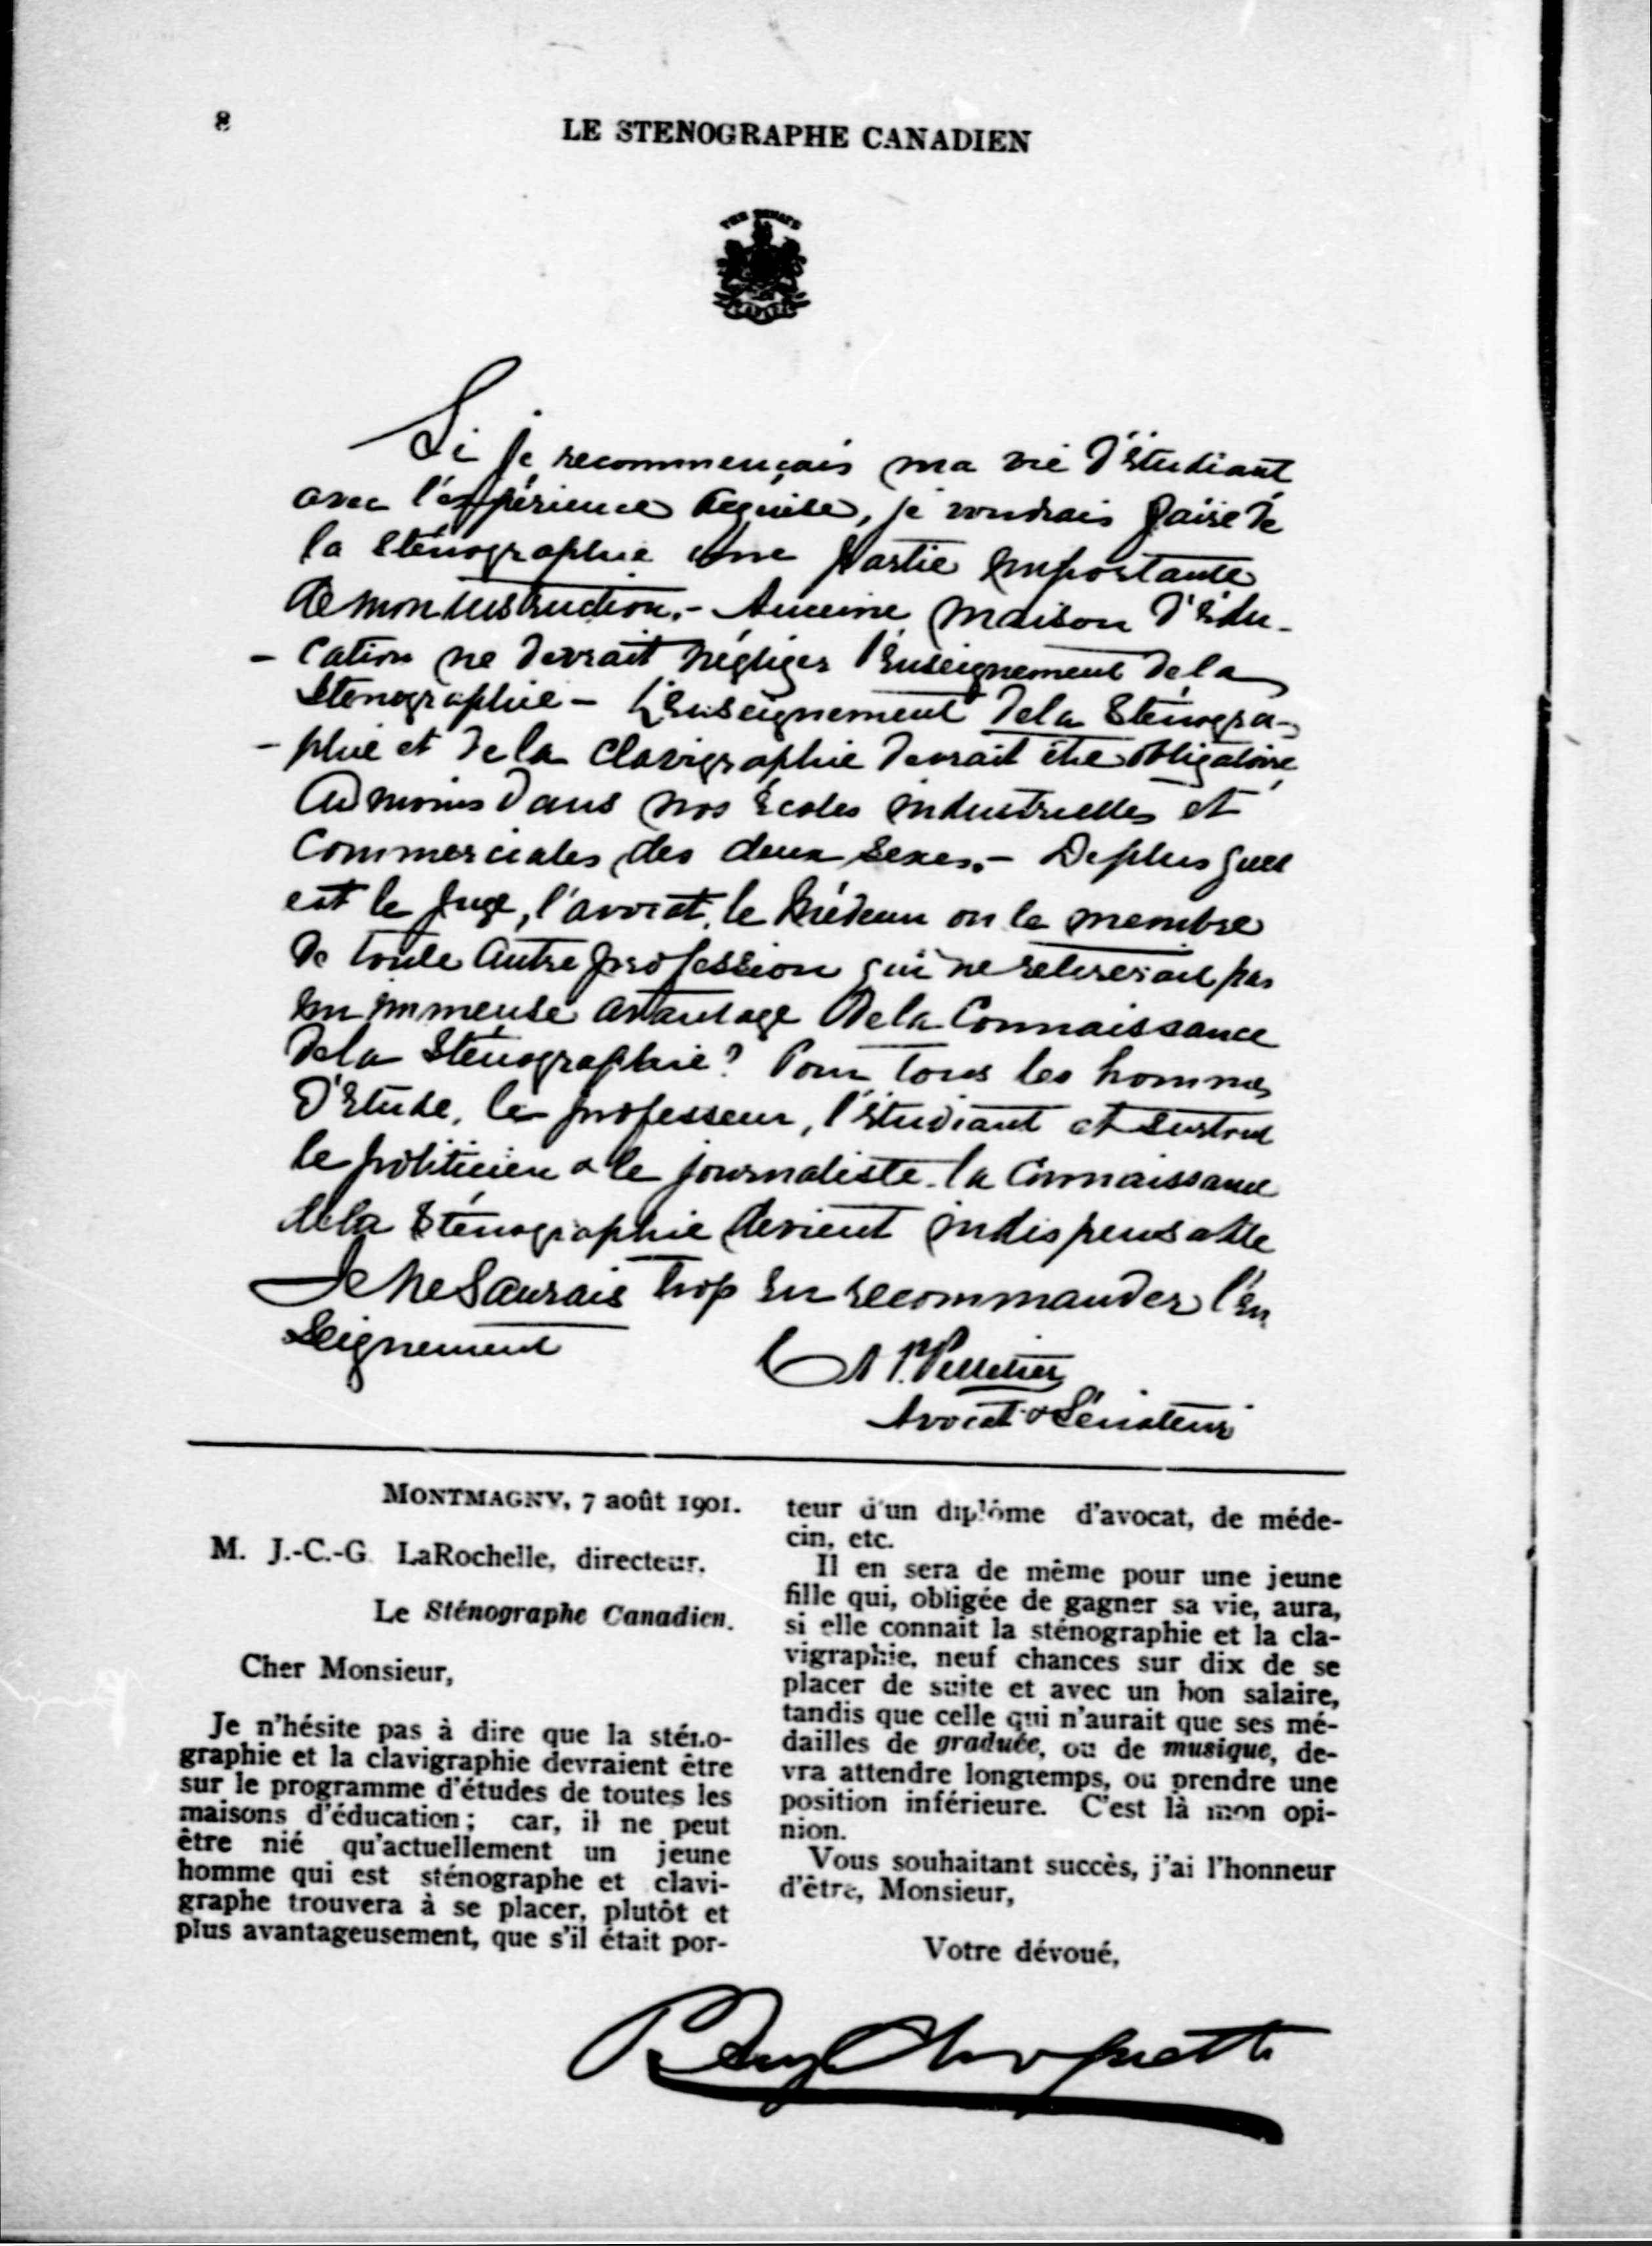 8
LE STENOGRAPHE CANADIEN
THE SENATE
CANADA
Si je recommençais ma vie d'étudiant
avec l'expérience acquise, je voudrais faire de
la sténographie une partie importante
de mon instruction. - Aucune maison d'édu-
- cation ne devrait négliger l'enseignement de la
Sténographie - L'enseignement de la Sténogra-
- phie et de la clavigraphie devrait être obligatoire
au moins dans nos écoles industrielles et
Commerciales des deux sexes. - De plus quel
est le juge, l'avocat, le médecin ou le membre
de toute autre profession qui ne retirerait pas
un immense avantage de la Connaissance
de la Sténographie? Pour tous les hommes
d'étude, le professeur, l'étudiant et surtout
le politicien & le journaliste la Connaissance
de la Sténographie devient indispensable
Je ne saurais trop en recommander l'en
seignement
C A P. Pelletier
Avocat & Sénateur
MONTMAGNY, 7 août 1901.
M. J.-C.-G. LaRochelle, directeur,
Le Sténographe Canadien.
Cher Monsieur,
Je n'hésite pas à dire que la sténo-
graphie et la clavigraphie devraient être
sur le programme d'études de toutes les
maisons d'éducation ; car, il ne peut
être nié qu'actuellement un jeune
homme qui est sténographe et clavi-
graphe trouvera à se placer, plutôt et
plus avantageusement, que s'il était por-
teur d'un diplôme d'avocat, de méde-
cin, etc.
Il en sera de même pour une jeune
fille qui, obligée de gagner sa vie, aura,
si elle connait la sténographie et la cla-
vigraphie, neuf chances sur dix de se
placer de suite et avec un bon salaire,
tandis que celle qui n'aurait que ses mé-
dailles de graduée, ou de musique, de-
vra attendre longtemps, ou prendre une
position inférieure. C'est là mon opi-
nion.
Vous souhaitant succès, j'ai l'honneur
d'être, Monsieur,
Votre dévoué,
P. Aug Choquette